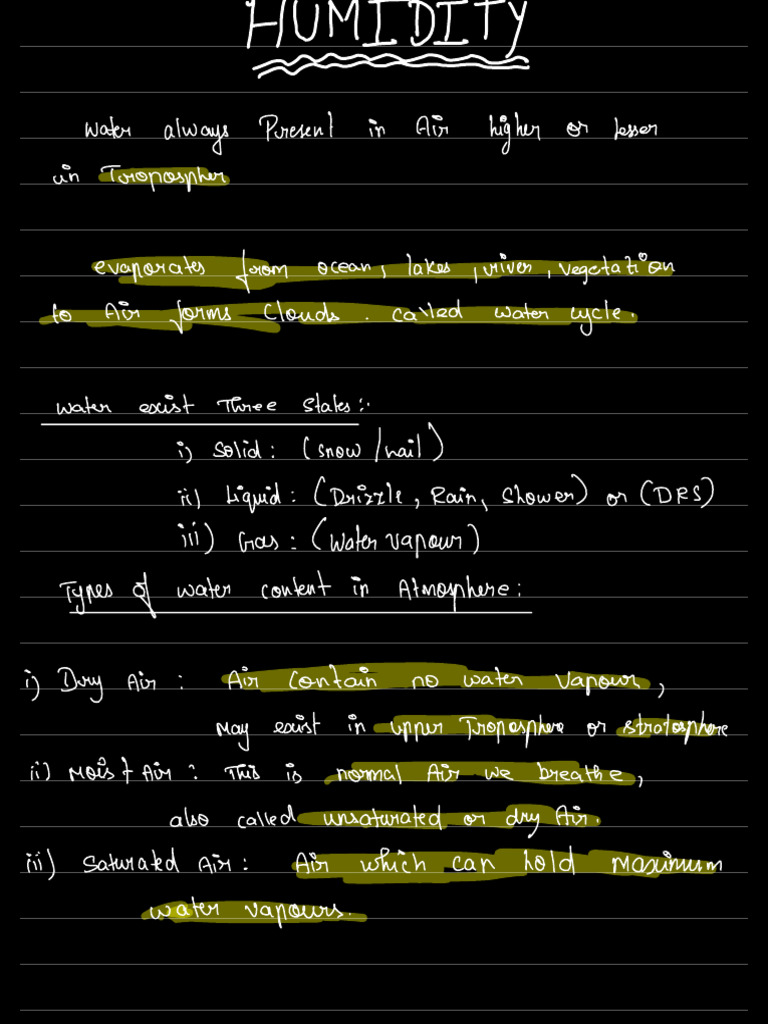 HUMIDITY
Water always Present in Air higher or lesser
in Tropospher
evaporates from ocean, lakes, river, vegetation
to Air forms Clouds. called water cycle.
Water exist Three States:-
i) Solid: (snow/hail)
ii) Liquid: (Drizzle, Rain, Shower) or (DRS)
iii) Gas: (Water vapour)
Types of water content in Atmosphere:
i) Dry Air: Air contain no water vapour,
May exist in upper Troposphere or stratosphere
ii) Moist Air: This is normal Air we breathe,
also called unsaturated or dry Air.
iii) Saturated Air: Air which can hold Maximum
water vapours.